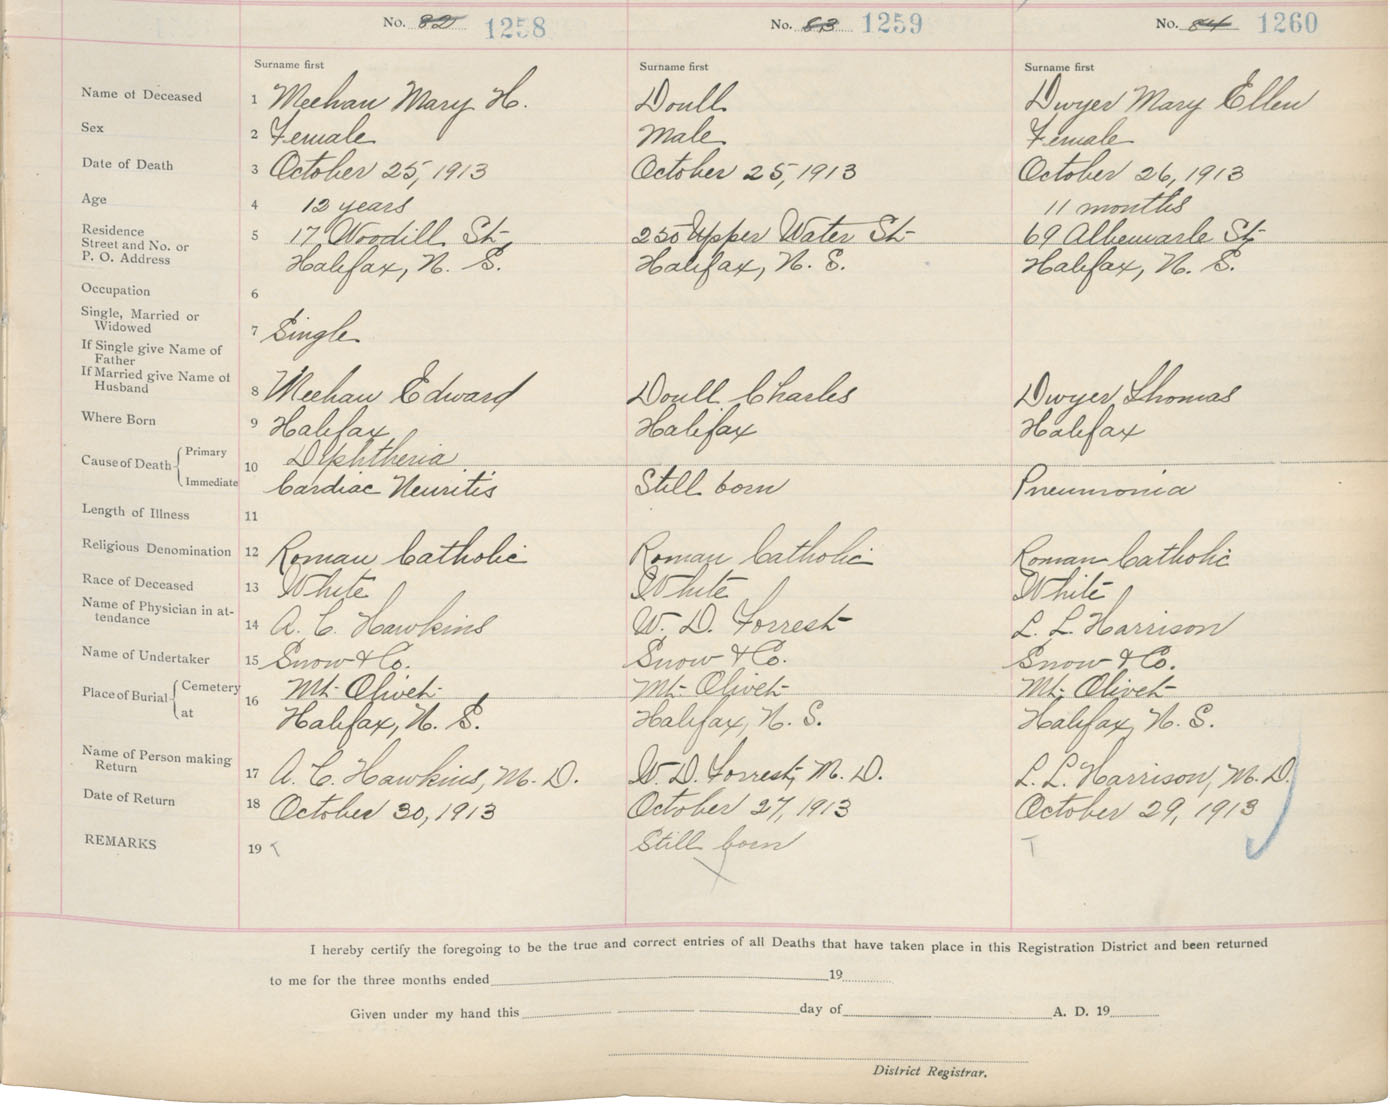 No. 82 1258 No. 83 1259 No. 84 1260
Surname first Surname first Surname first
Name of Deceased 1 Meehan Mary H. Doull Dwyer Mary Ellen
Sex 2 Female Male Female
Date of Death 3 October 25, 1913 October 25, 1913 October 26, 1913
Age 4 12 years 11 months
Residence
Street and No. or 5 17 Woodill St. 250 Upper Water St. 69 Albemarle St.
P. O. Address Halifax, N. S. Halifax, N. S. Halifax, N. S.
Occupation 6
Single, Married or
Widowed 7 Single
If Single give Name of
Father
If Married give Name of
Husband 8 Meehan Edward Doull Charles Dwyer Thomas
Where Born 9 Halifax Halifax Halifax
Cause of Death Primary 10 Diphtheria
Immediate Cardiac Neuritis Still born Pneumonia
Length of Illness 11
Religious Denomination 12 Roman Catholic Roman Catholic Roman Catholic
Race of Deceased 13 White White White
Name of Physician in at-
tendance 14 A. C. Hawkins W. D. Forrest L. L. Harrison
Name of Undertaker 15 Snow & Co. Snow & Co. Snow & Co.
Place of Burial Cemetery 16 Mt. Olivet Mt. Olivet Mt. Olivet
at Halifax, N. S. Halifax, N. S. Halifax, N. S.
Name of Person making
Return 17 A. C. Hawkins, M. D. W. D. Forrest, M. D. L. L. Harrison, M. D.
Date of Return 18 October 30, 1913 October 27, 1913 October 29, 1913
REMARKS 19 T Still born T
I hereby certify the foregoing to be the true and correct entries of all Deaths that have taken place in this Registration District and been returned
to me for the three months ended 19
Given under my hand this day of A. D. 19
District Registrar.